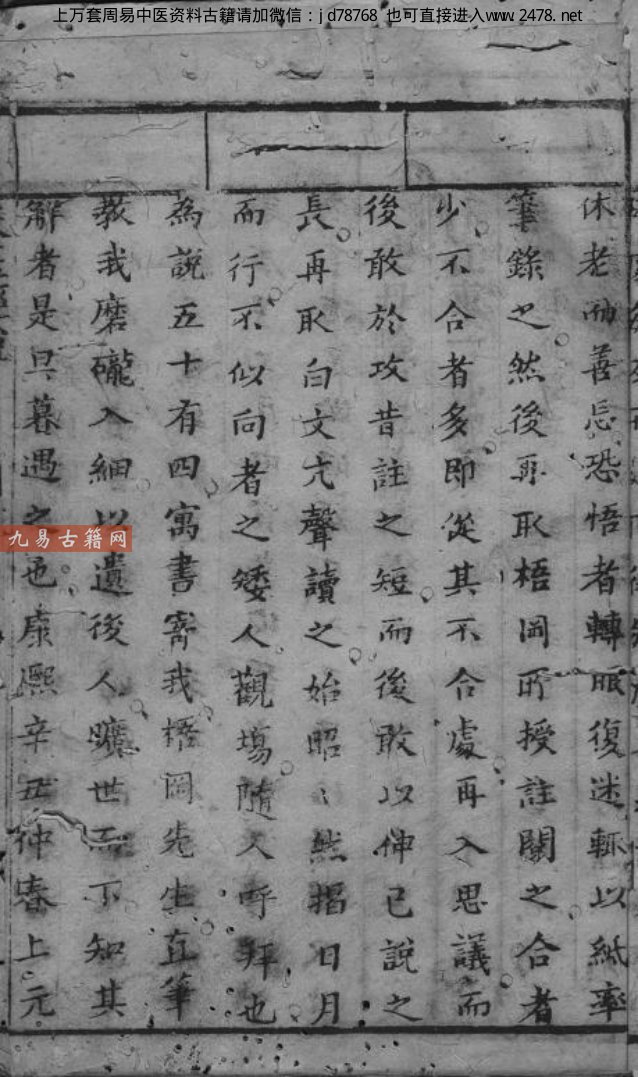 上万套周易中医资料古籍请加微信:jd78768 也可直接进入www.2478.net
休老而善忘恐悟者轉眼復迷輒以紙率
筆錄之然後再取梧岡所授註關之合者
少不合者多即從其不合處再入思議而
後敢於攻昔註之短而後敢以伸已說之
長再取白文亢聲讀之始昭〻然揭日月
而行不似向者之矮人觀塲隨人呼拜也
為說五十有四寓書寄我梧岡先生直筆
教我磨礲入細以遺後人曠世而下知其
解者是旦暮遇之也康熙辛丑仲春上元
九易古籍网